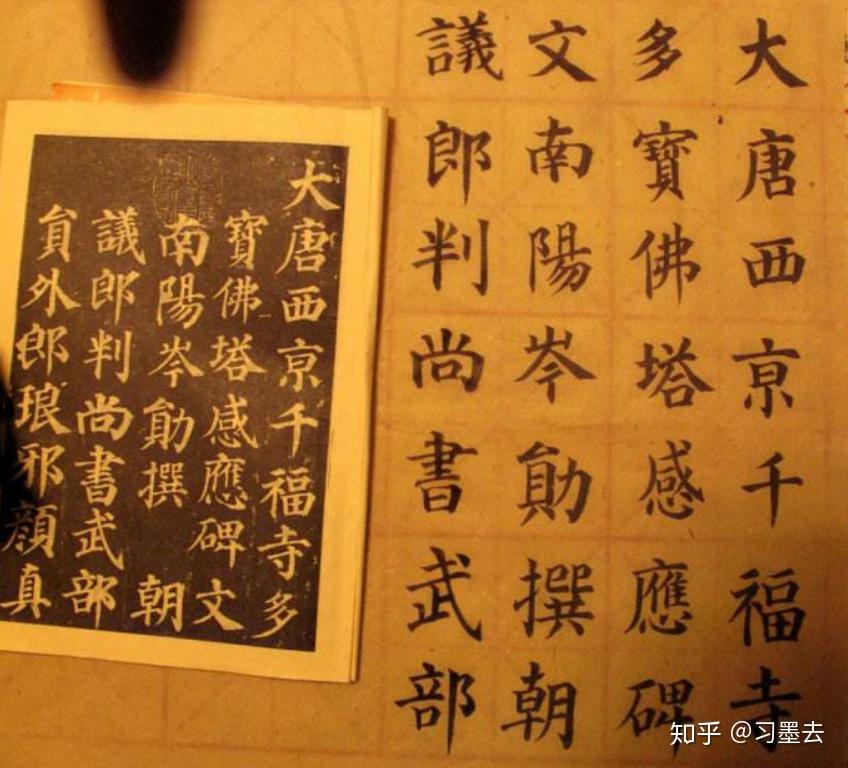 大唐西京千福寺
多寶佛塔感應碑
文南陽岑勛撰朝
議郎判尚書武部
大唐西京千福寺多
寶佛塔感應碑文
南陽岑勛撰朝
議郎判尚書武部
員外郎琅邪顏真
知乎 @习墨去